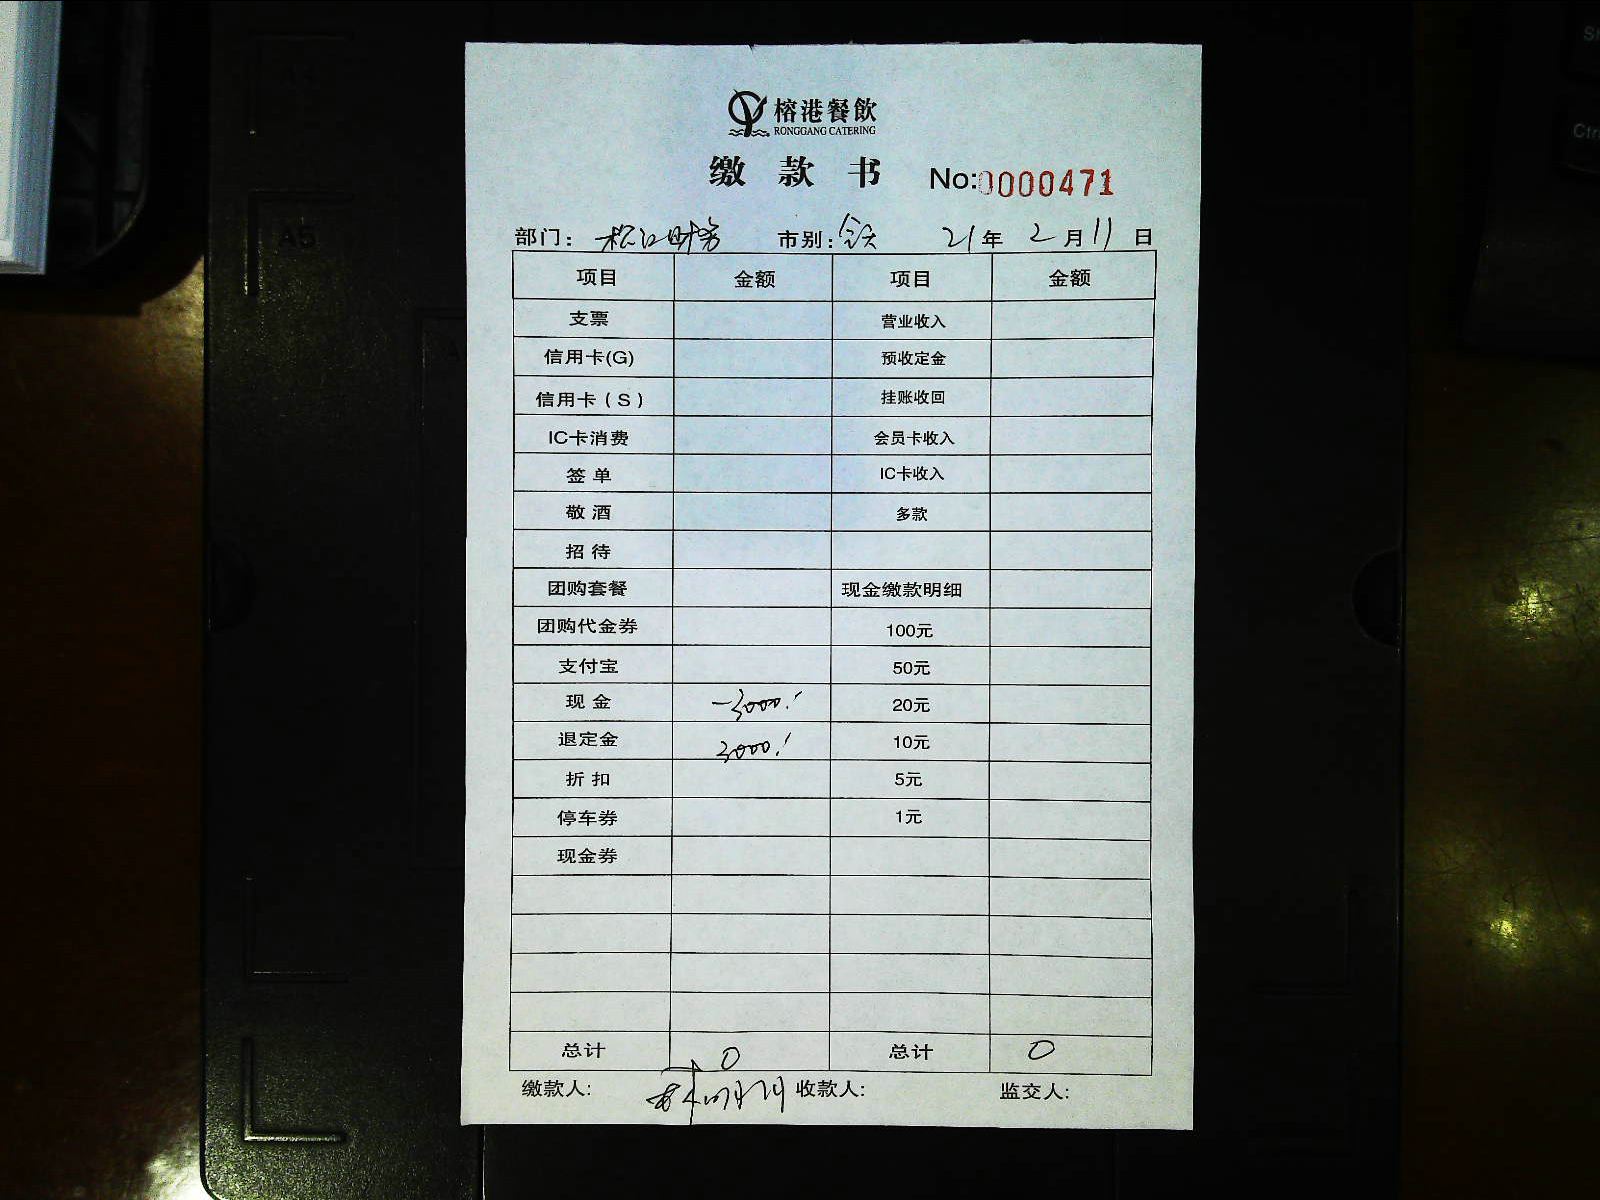 榕港餐飲
RONGGANG CATERING
缴款书 No:0000471
部门: 松江财务 市别: 全天 21年2月11日
项目 金额 项目 金额
支票 营业收入
信用卡(G) 预收定金
信用卡(S) 挂账收回
IC卡消费 会员卡收入
签单 IC卡收入
敬酒 多款
招待
团购套餐 现金缴款明细
团购代金券 100元
支付宝 50元
现金 -3000.- 20元
退定金 3000.- 10元
折扣 5元
停车券 1元
现金券
总计 0 总计 0
缴款人: 收款人: 监交人:
A5